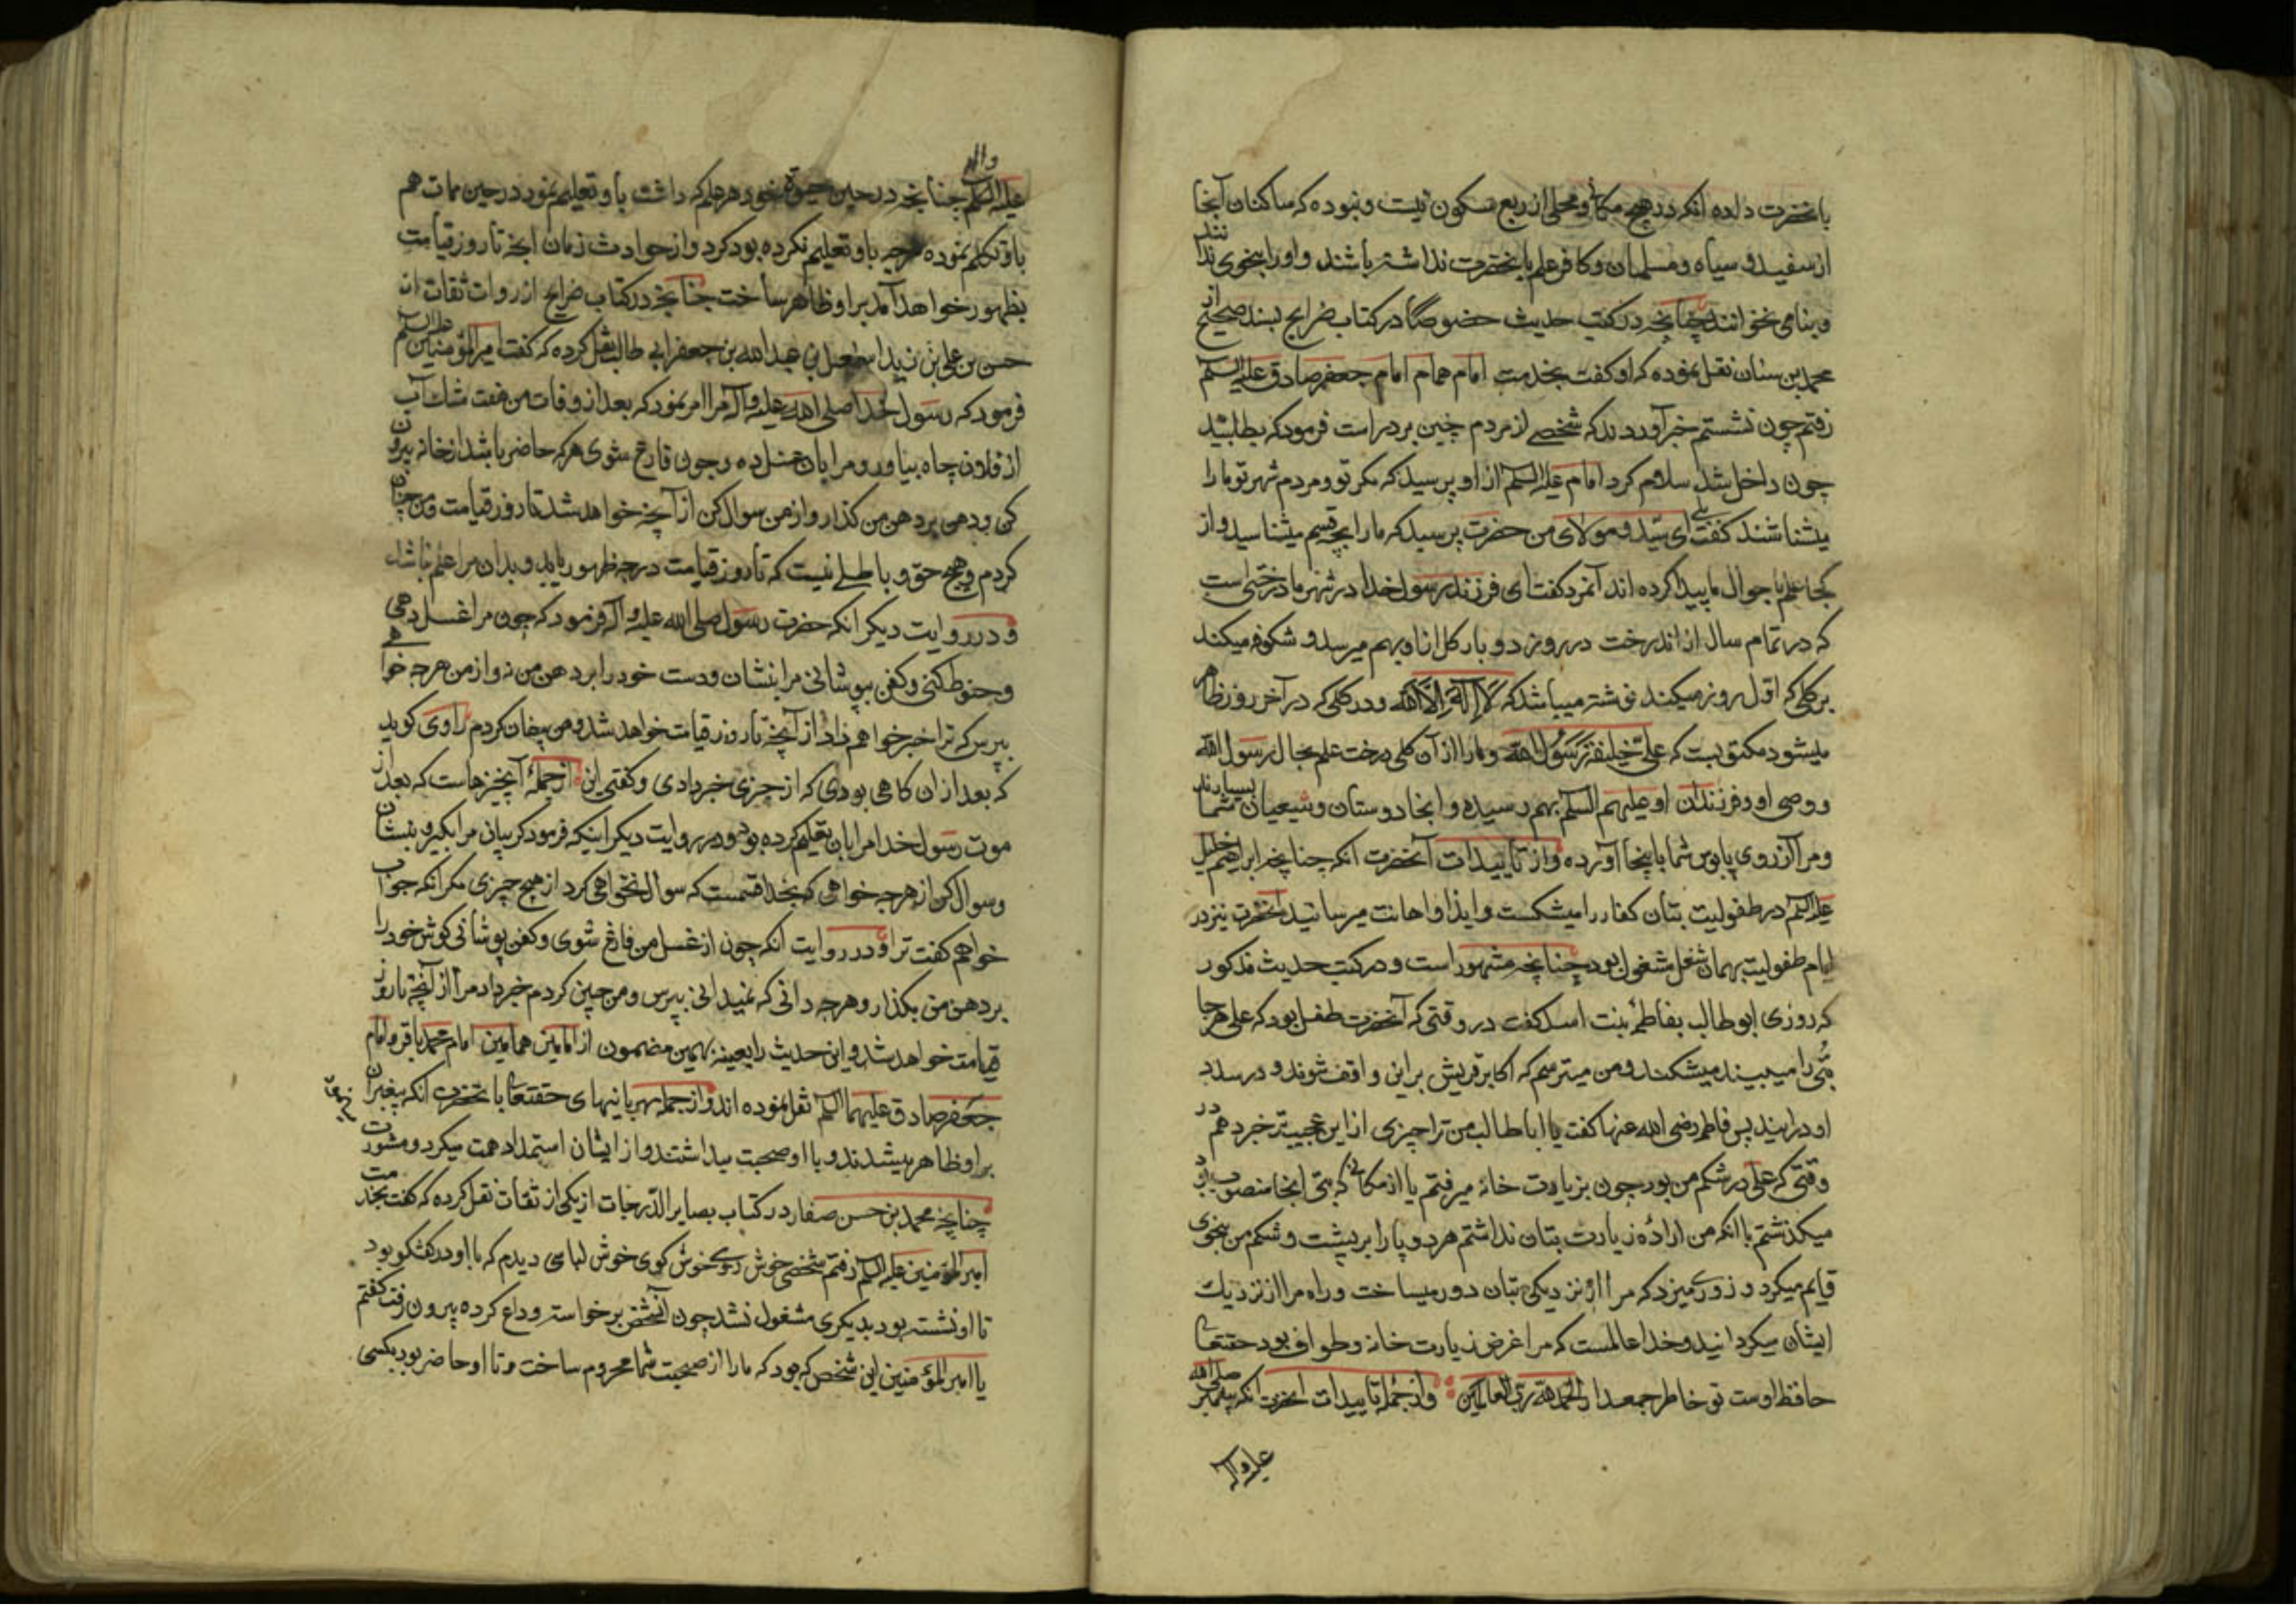 بانحضرت داده انکه در هیچ مکانی و محلی از ربع مسکون نیست و نبوده که ساکنان آنجا
از سفید و سیاه و مسلمان و کافر علم بانحضرت نداشته باشند و او را بنحوی ندانند
و بنامی نخوانند چنانچه در کتب حدیث خصوصا در کتاب خرایج بسند صحیح از
محمد بن سنان نقل نموده که او کفت بخدمت امام همام امام جعفر صادق علیه السلم
رفتم چون نشستم خبر آوردند که شخصی از مردم چین بر در است فرمود که بطلبید
چون داخل شد سلام کرد امام علیه السلم از او پرسید که مکر تو و مردم شهر تو ما را
میشناسند کفت بلی ای سید و مولای من حضرت پرسید که ما را بچه قسم میشناسید و از
کجا علم باحوال ما پیدا کرده اند آنمرد کفت ای فرزند رسول خدا در شهر ما درختی است
که در تمام سال از اندرخت در روز دو بار کل از او بهم میرسد و شکوفه میکند
بر کلی که اول روز میکند نوشته میباشد که لا اله الا الله و در کلی که در آخر روز ظاهر
میشود مکتوبست که علی خلیفة رسول الله و ما را از آن کل درخت علم بحال رسول الله
و وصی او و فرزندان او علیهم السلم بهم رسیده و انجا دوستان و شیعیان شما بسیارند
و مرا آرزوی پابوس شما باینجا آورده و از تاییدات آنحضرت انکه چنانچه ابراهیم خلیل
علیه السلم در طفولیت بتان کفار را میشکست و ایذا و اهانت میرسانید انحضرت نیز در
ایام طفولیت بهمان شغل مشغول بود چنانچه مشهور است و در کتب حدیث مذکور
که روزی ابو طالب بفاطمه بنت اسد کفت در وقتی که آنحضرت طفل بود که علی هر جا
بتی را میبیند میشکند و من میترسم که اکابر قریش بر این واقف شوند و در صدد
او درایند پس فاطمه رضی الله عنها کفت یا ابا طالب من ترا چیزی از این عجیبتر خبر دهم در
وقتی که علی در شکم من بود چون بزیارت خانه میرفتم یا از مکانی که بتی انجا منصوب بود
میکذشتم با انکه من اراده زیارت بتان نداشتم هر دو پا را بر پشت و شکم من بنحوی
قایم میکرد و زور میزد که مرا از نزدیکی بتان دور میساخت و راه مرا از نزدیك
ایشان میکردانید و خدا عالمست که مرا غرض زیارت خانه و طواف بود حقتعالی
حافظ اوست تو خاطر جمعدار الحمد لله رب العالمین و از جمله تاییدات انحضرت انکه پیغمبر صلی الله
علیه و آله
علیه و اله السلم چنانچه در حین حیوة خود هر علم که داشت باو تعلیم نمود در حین ممات هم
باو تکلم نموده هر چه باو تعلیم نکرده بود کرد و از حوادث زمان انچه تا روز قیامت
بظهور خواهد آمد بر او ظاهر ساخت چنانچه در کتاب خرایج از روات ثقات از
حسن بن علی بن زید اسمعیل بن عبد الله بن جعفر ابی طالب نقل کرده که کفت امیر المؤمنین علیه السلم
فرمود که رسول خدا صلی الله علیه و آله مرا امر نمود که بعد از وفات من هفت مشك آب
از فلان چاه بیاور و مرا بان غسل ده و چون فارغ شوی هر که حاضر باشد از خانه بیرون
کن و دهن بر دهن من کذار و از من سوال کن از آنچه خواهد شد تا روز قیامت و من چنان
کردم و هیچ حق و باطلی نیست که تا روز قیامت درجه ظهور یابد و بدان مرا علم نباشد
و در روایت دیکر انکه حضرت رسول صلی الله علیه و اله فرمود که چون مرا غسل دهی
و حنوط کنی و کفن بپوشانی مرا بنشان و دست خود را بر دهن من نه و از من هر چه خواهی
بپرس که ترا خبر خواهم داد از آنچه تا روز قیامت خواهد شد و من چنان کردم راوی کوید
که بعد از ان کاهی بودی که از چیزی خبر دادی و کفتی این از جمله آنچیزهاست که بعد از
موت رسول خدا مرا بان تعلیم کرده بود و در روایت دیکر اینکه فرمود کریبان مرا بکیر و بنشان
و سوال کن از هر چه خواهی که بخدا قسمست که سوال نخواهی کرد از هیچ چیزی مکر انکه جواب
خواهم کفت ترا و در روایت انکه چون از غسل من فارغ شوی و کفن پوشانی کوش خود را
بر دهن من بکذار و هر چه دانی که نمیدانی بپرس و من چنین کردم خبر داد مرا از آنچه تا روز
قیامت خواهد شد و این حدیث را بعینه بهمین مضمون از امامین همامین امام محمد باقر و امام
جعفر صادق علیهما السلم نقل نموده اند و از جمله مهربانیهای حقتعالی بانحضرت انکه پیغمبران
بر او ظاهر میشدند و با او صحبت میداشتند و از ایشان استمداد همت میکرد و مشورت
چنانچه محمد بن حسن صفار در کتاب بصایر الدرجات از یکی از ثقات نقل کرده که کفت بخدمت
امیر المؤمنین علیه السلم رفتم شخصی خوش روی خوش کوی خوش لباسی دیدم که با او در کفتکو بود
تا او نشسته بود بدیکری مشغول نشد چون آنشخص برخواسته وداع کرده بیرون رفت کفتم
یا امیر المؤمنین این شخص که بود که ما را از صحبت شما محروم ساخت و تا او حاضر بود بکسی